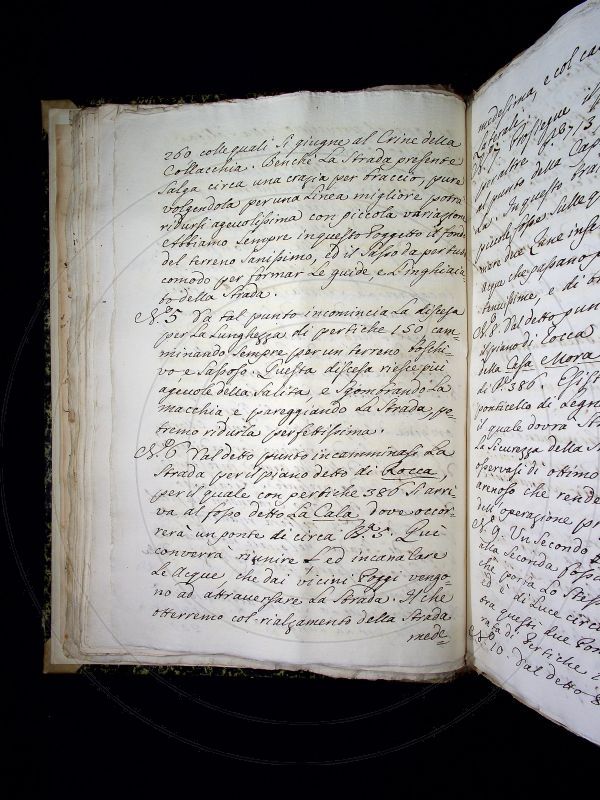 260 colle quali si giugne al Crine della
Collacchia. Benchè La Strada presente
Salga circa una crazia per braccio, pure
volgendola per una Linea migliore potrà
ridursi agevolissima con piccola variazione
Abbiamo sempre in questo Poggetto il fondo
del terreno sanissimo, ed il Sasso da per tutto
comodo per formar Le guide, e L'inghiaia-
to della Strada.
N.° 5 Da tal punto incomincia La discesa
per La Lunghezza di pertiche 150 cam-
minando sempre per un terreno boschi-
vo e sassoso. Questa discesa riesce più
agevole della Salita, e sgombrando La
macchia e pareggiando La Strada, po-
tremo ridurla perfettissima.
N.° 6 Dal detto punto incamminasi La
Strada per il piano detto di Rocca,
per il quale con pertiche 386 si arri-
va al fosso detto La Cala dove occor-
rerà un ponte di circa B.a 5. Qui
converrà riunire ed incanalare
Le Acque che dai vicini Poggi vengo-
no ad attraversare La Strada. Il che
otterremo col rialzamento della Strada
mede-
medesima, e col ca
Laterali
N. 7. Prosiegue il
per altre
al punto della Cap
da. In questo tra
piccole fosse sulle q
acque che passano p
tenuissime, e di b
N. 8. Dal detto pun
piano di Rocca
della Casa Mora
di P.e 386. Esist
ponticello di Legn
il quale dovrà
La Sicurezza della
osservasi di ottimo
arenoso che rende
N. 9. Un Secondo
alla Seconda
che porta Lo stess
di Luce circ
questi due
di Pertiche
N. 10. Dal detto